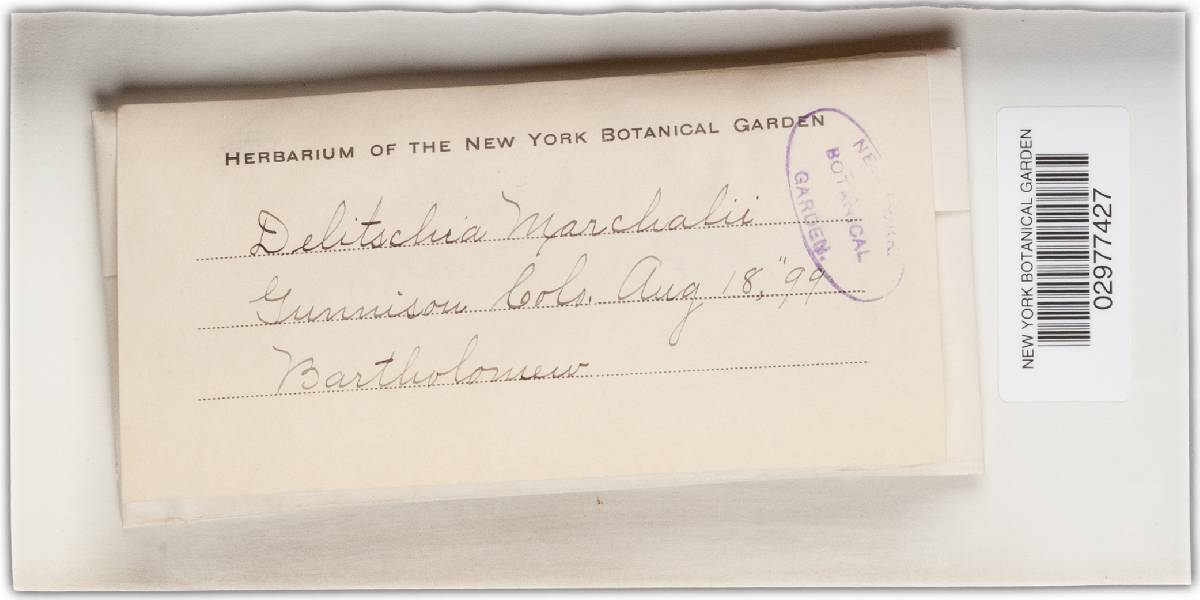 HERBARIUM OF THE NEW YORK BOTANICAL GARDEN
Delitschia Marchalii
Gunnison Colo. Aug 18, "99
Bartholomew
NEW YORK
BOTANICAL
GARDEN.
NEW YORK BOTANICAL GARDEN
02977427